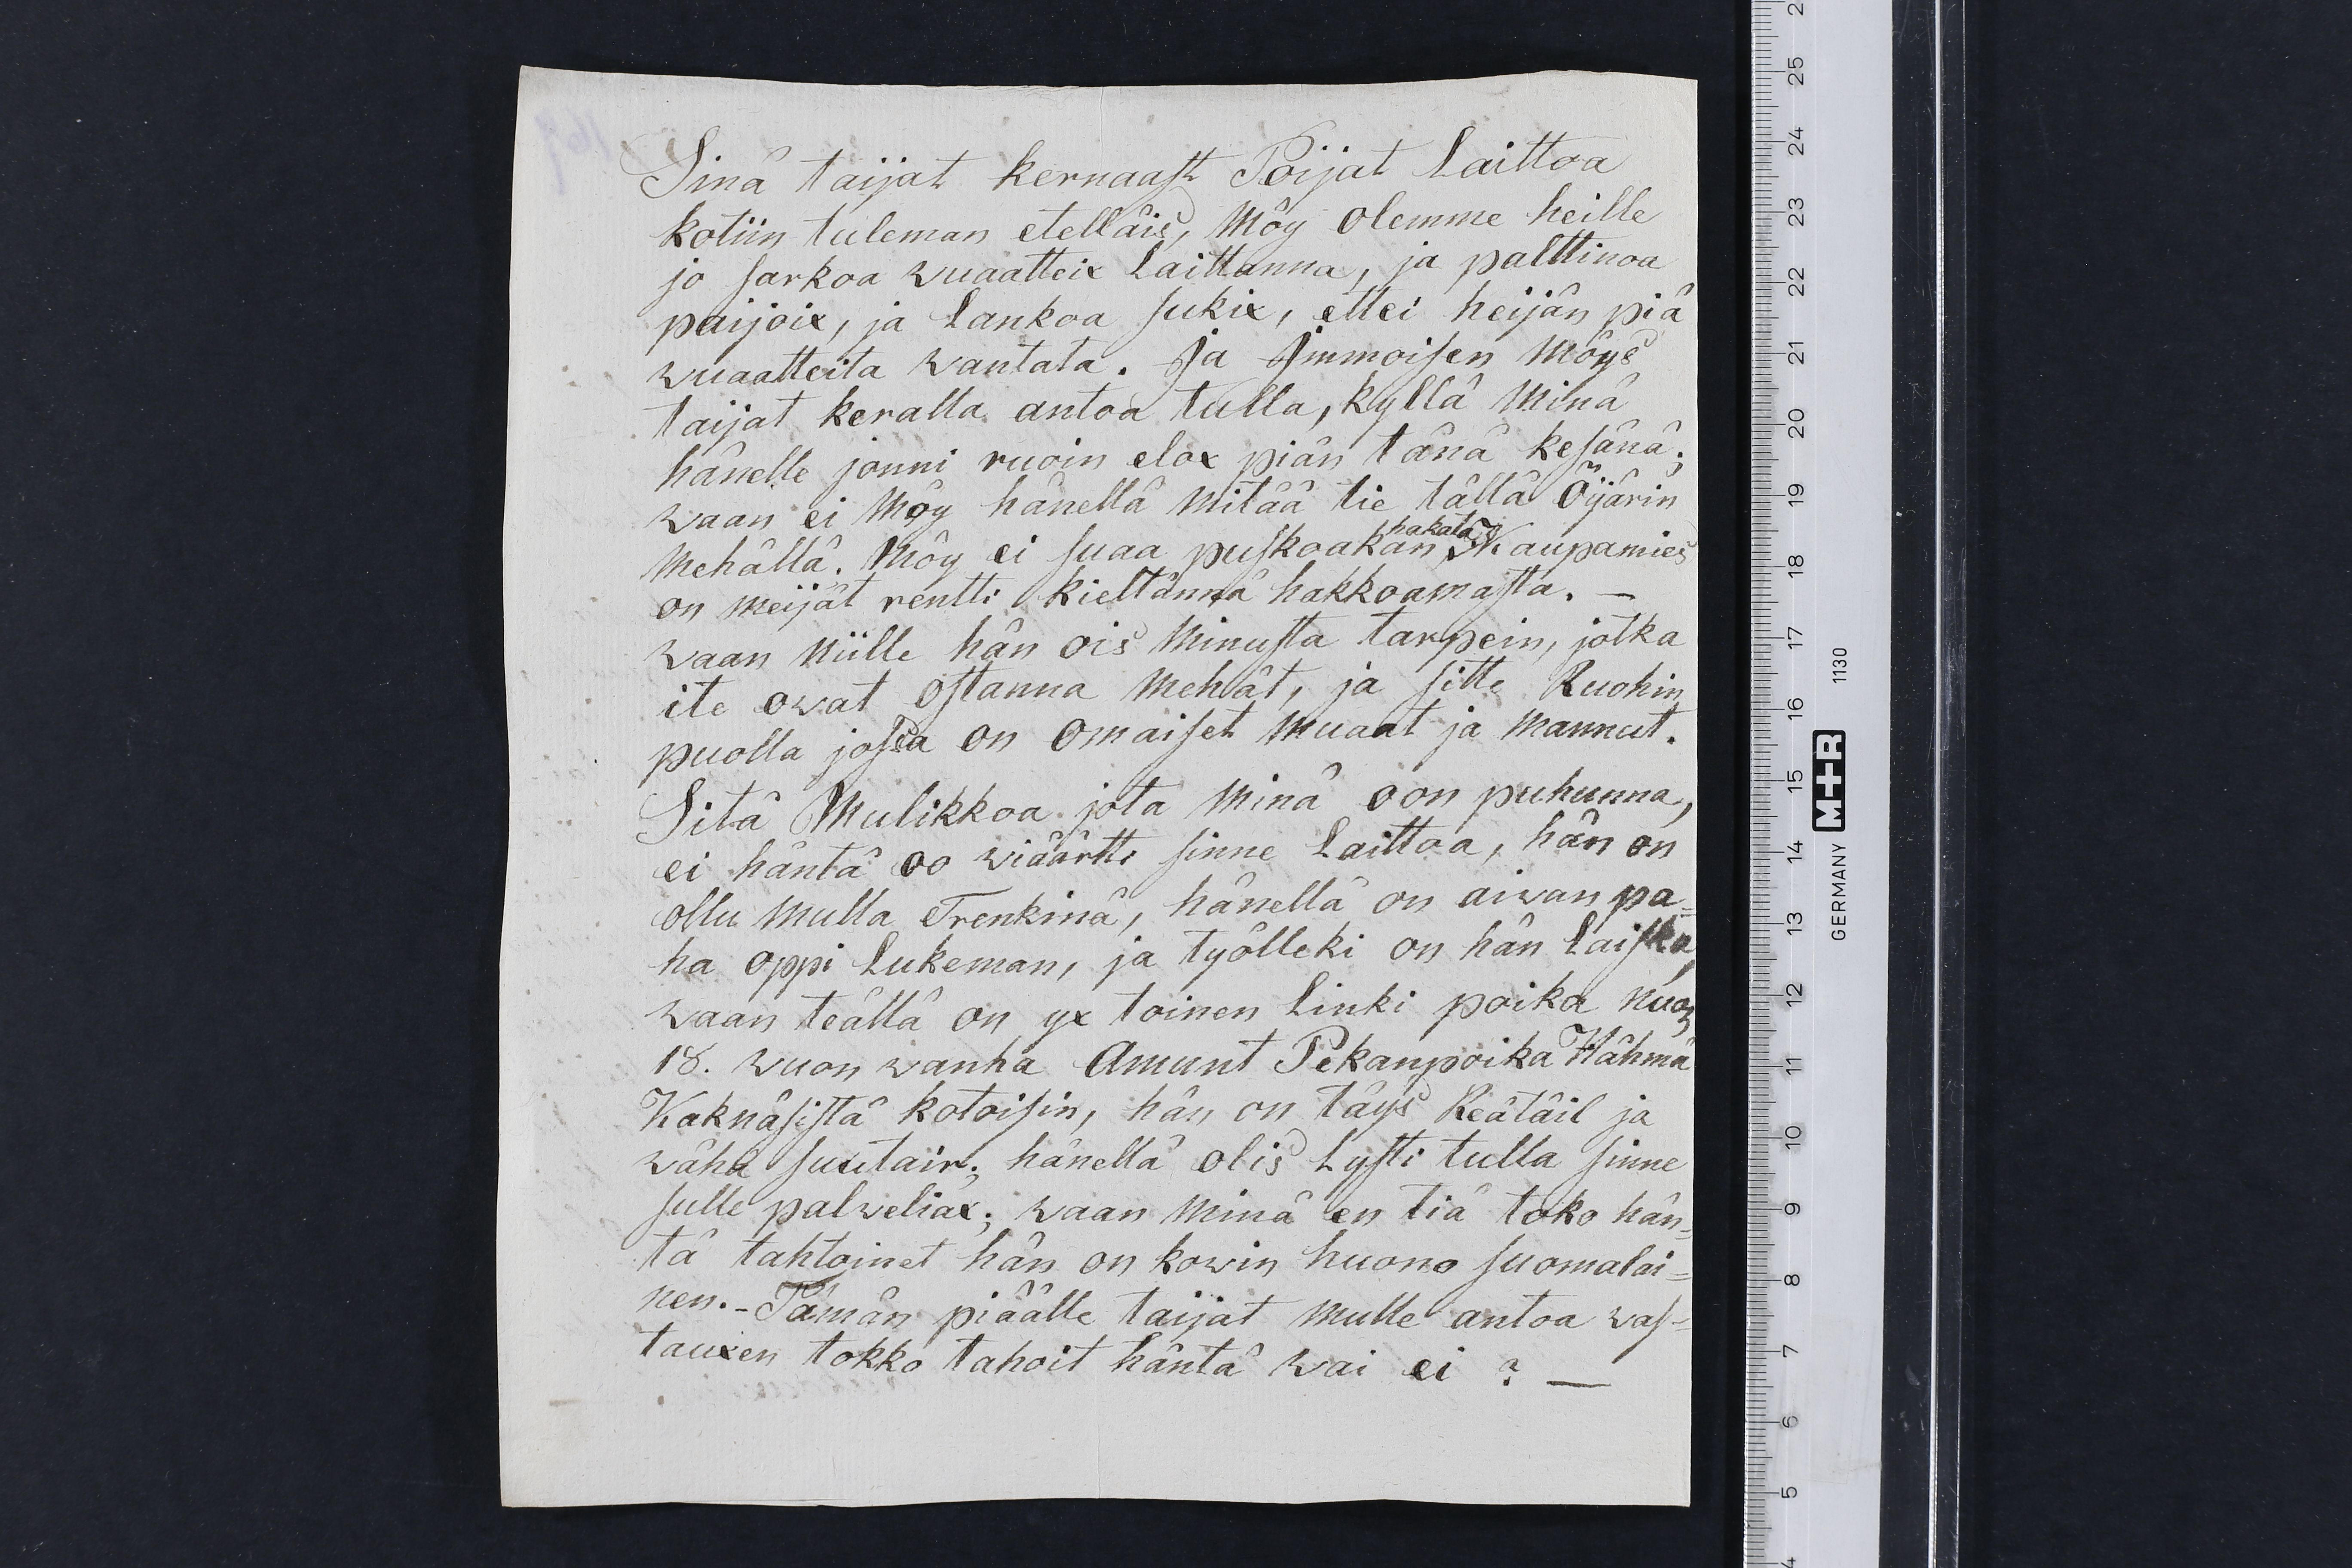 Sinä taijat kernaast Poijat Laittoa
kotiin tuleman etelläis, Möy olemme heille
jo sarkoa wuaatteix Laittanna, ja palttinoa
paijoix, ja Lankoa sukix, ettei heijän piä
wuaatteita wantata. Ja Immoisen Möys
taijat keralla antoa tulla, kyllä Minä
hänelle jonni ruoin elox piän tänä kesänä;
waan ei Möy hänellä Mitää tie tällä Öijärin
Mehällä. Möy ei suaa puskoakan hakata, Kaupamies
on Meijät rentti kieltännä hakkoamasta. —
waan Niille hän ois Minusta tarpein, jotka
ite owat ostanna Mehät, ja sitte Ruohin
puolla jossa on Omaiset Muaat ja Mannut.
Sitä Mulikkoa jota Minä oon puhunna,
ei häntä oo wiäärtti sinne Laittoa, hän on
ollu Mulla Trenkinä, hänellä on aiwan pa=
ha oppi Lukeman, ja työlleki on hän Laiska,
waan teällä on yx toinen Linki poika Nuor
18. wuon wanha Amunt Pekanpoika Hähmä
Kaknäsistä kotoisin, hän on täys Reätäil ja
wähä suutair; hänellä olis Lysti tulla sinne
sulle palweliax; waan Minä en tiä toko hän=
tä tahtoinet hän on kowin huono suomalai=
nen. - Tämän piäälle taijat Mulle antoa was=
tauxen tokko tahoit häntä wai ei ? —
4
5
6
7
8
9
10
11
12
13
14
15
16
17
18
19
20
21
22
23
24
25
GERMANY M+R 1130